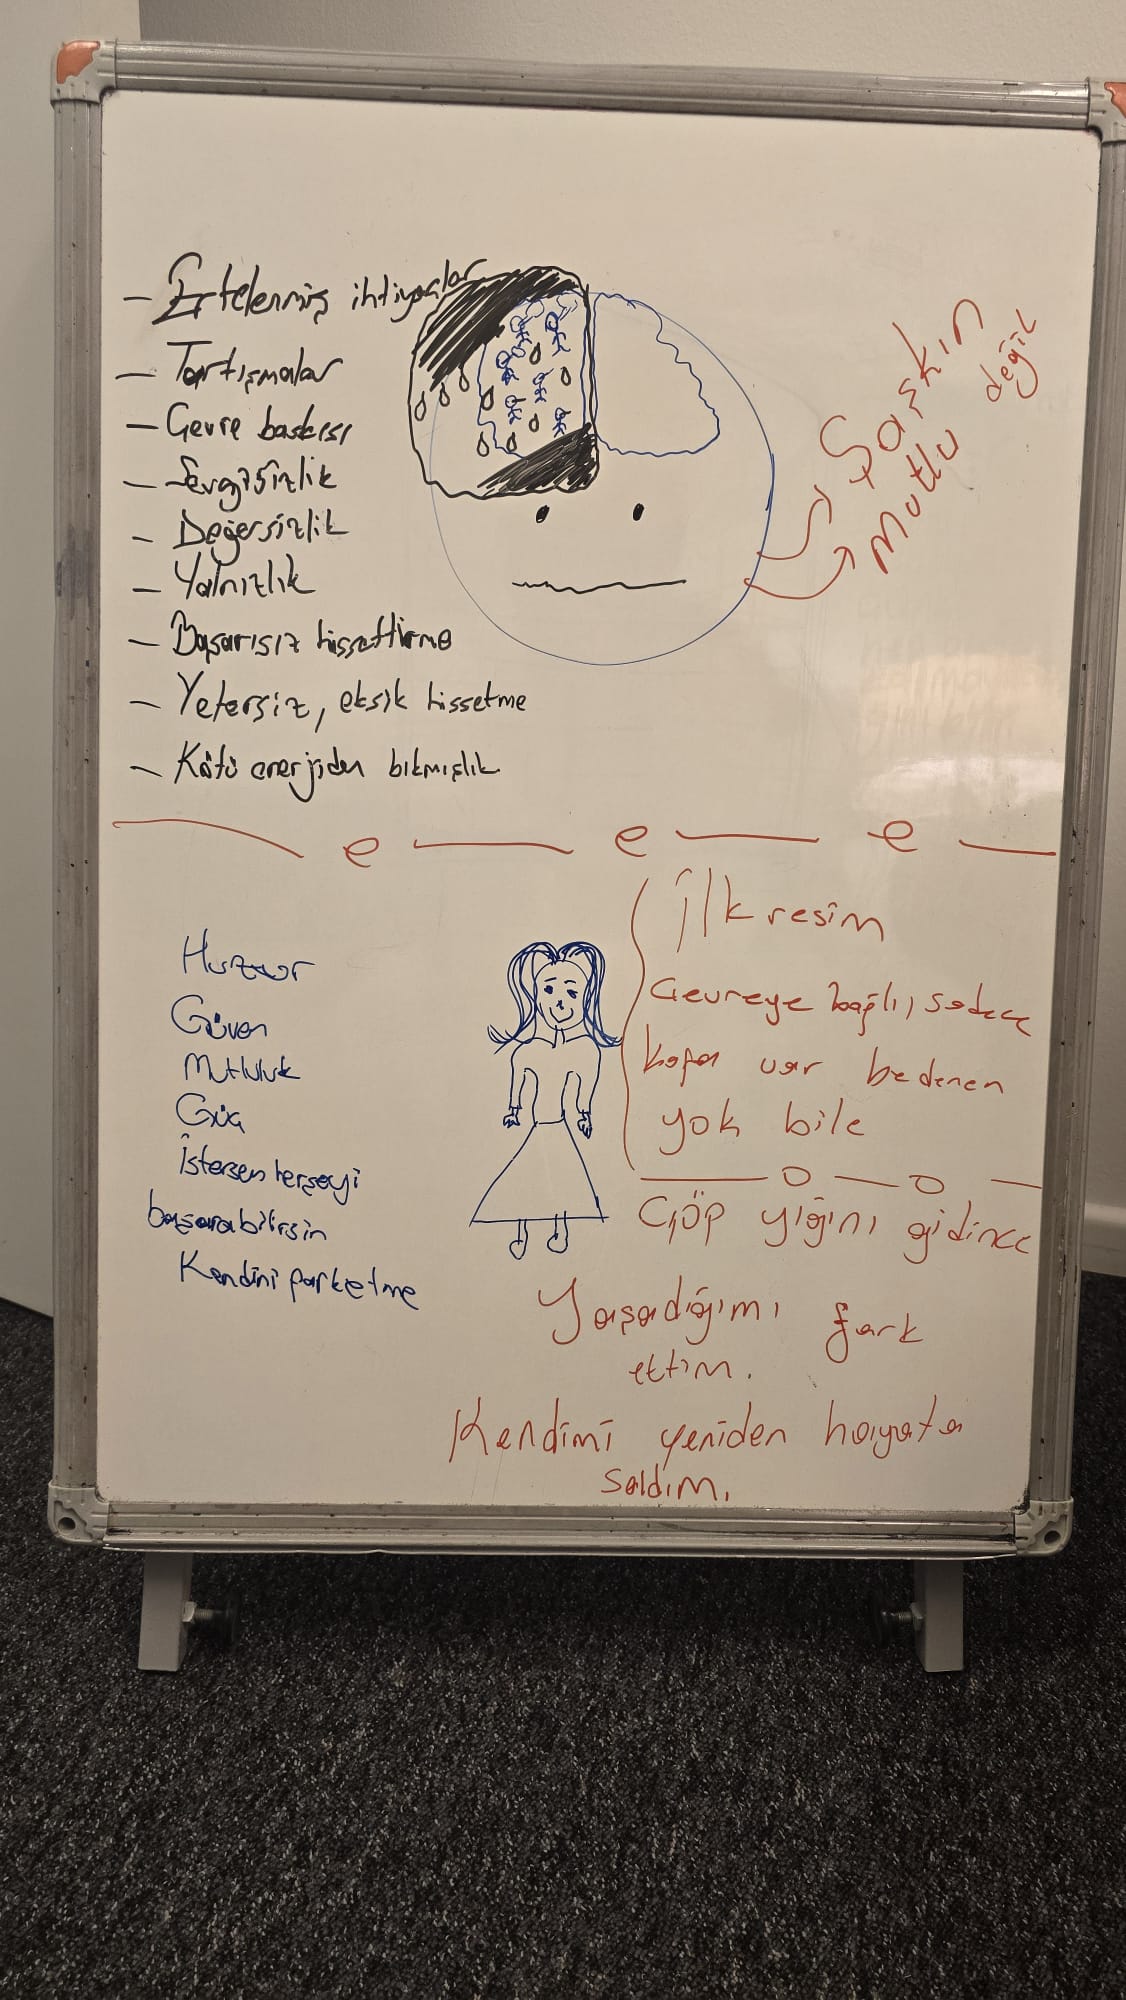 - Ertelenmiş ihtiyaçlar
- Tartışmalar
- Çevre baskısı
- Sevgisizlik
- Değersizlik
- Yalnızlık
- Başarısız hissettirme
- Yetersiz, eksik hissetme
- Kötü enerjiden bıkmışlık
Şaşkın
Mutlu değil
Huzur
Güven
Mutluluk
Güç
İstersen herşeyi
başarabilirsin
Kendini farketme
İlk resim
Çevreye bağlı, sadece
kafa var bedenen
yok bile
Çöp yığını gidince
Yaşadığımı fark
ettim.
Kendimi yeniden hayata
saldım.